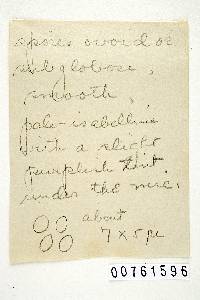 spores ovoid or
subglobose,
smooth,
pale-isabelline
with a slight
purplish tint
under the mic.
about
7 x 5 µ
00761596